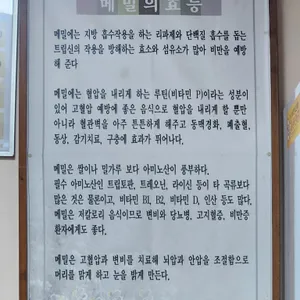 메밀의효능
메밀에는 지방 흡수작용을 하는 리파제와 단백질 흡수를 돕는
트립신의 작용을 방해하는 효소와 섬유소가 많아 비만을 예방
해 준다
메밀에는 혈압을 내리게 하는 루틴(비타민 P)이라는 성분이
있어 고혈압 예방에 좋은 음식으로 혈압을 내리게 할 뿐만
아니라 혈관벽을 아주 튼튼하게 해주고 동맥경화, 폐출혈,
동상, 감기치료, 구충에 효과가 뛰어나다.
메밀은 쌀이나 밀가루 보다 아미노산이 풍부하다.
필수 아미노산인 트립토판, 트레오닌, 라이신 등이 타 곡류보다
많은 것은 물론이고, 비타민 B1, B2, 비타민 D, 인산 등도 많다.
메밀은 저칼로리 음식이므로 변비와 당뇨병, 고지혈증, 비만증
환자에게도 좋다.
메밀은 고혈압과 변비를 치료해 뇌압과 안압을 조절함으로
머리를 맑게 하고 눈을 밝게 만든다.